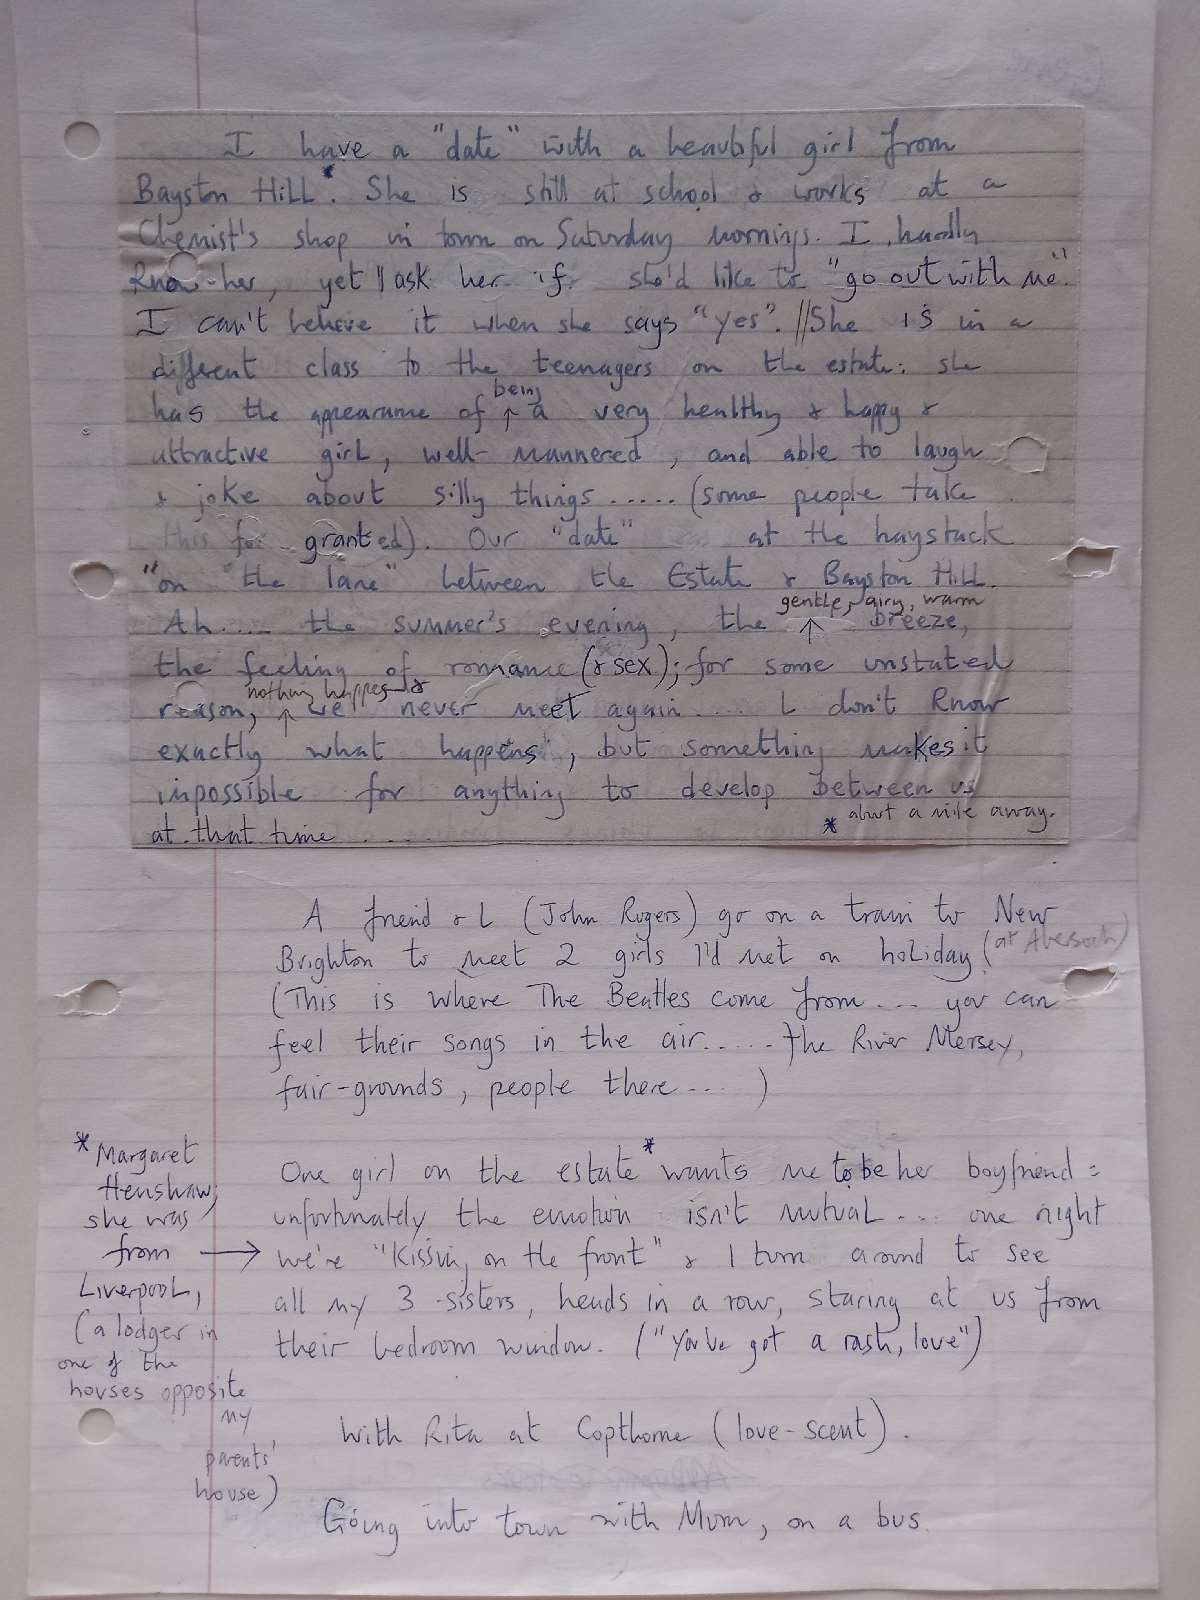 I have a "date" with a beautiful girl from
Bayston Hill*. She is still at school & works at a
Chemist's shop in town on Saturday mornings. I hardly
know her, yet I ask her if she'd like to "go out with me".
I can't believe it when she says "yes". // She is in a
different class to the teenagers on the estate: she
being
has the appearance of ↑ a very healthy & happy &
attractive girl, well-mannered, and able to laugh
& joke about silly things ..... (some people take
this for granted). Our "date" at the haystack
"on "the lane" between the Estate & Bayston Hill.
gentle, airy, warm
Ah .... the summer's evening, the ↑ breeze,
the feeling of romance (& sex); for some unstated
nothing happes &
reason, ↑ we never meet again .... I don't know
exactly what "happens", but something makes it
impossible for anything to develop between us
* about a mile away.
at that time ....
A friend & I (John Rogers) go on a train to New
Brighton to meet 2 girls I'd met on holiday (at Abersoch)
(This is where The Beatles come from .... you can
feel their songs in the air ..... the River Mersey,
fair-grounds, people there .... )
One girl on the estate* wants me to be her boyfriend =
unfortunately the emotion isn't mutual ... one night
we're "Kissing on the front" & I turn around to see
all my 3 sisters, heads in a row, staring at us from
their bedroom window. ("You've got a rash, love")
* Margaret
Henshaw,
she was
from →
Liverpool,
(a lodger in
one of the
houses opposite
my
parents'
house)
With Rita at Copthorne (love-scent).
Going into town with Mum, on a bus.